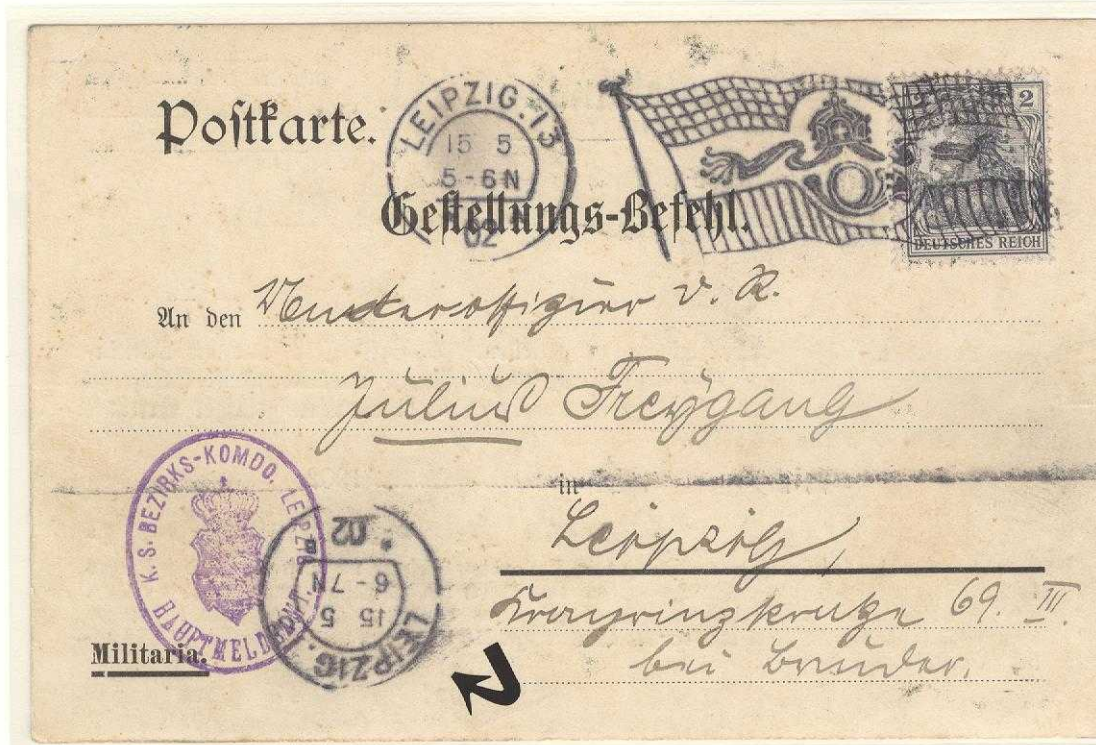 Postkarte.
LEIPZIG.13
15 5
5-6N
02
2
DEUTSCHES REICH
Gestellungs-Befehl.
An den Unteroffizier d. R.
Julius Freygang
in
Leipzig,
69. III
bei Bruder.
K. S. BEZIRKS-KOMDO. LEIPZIG
HAUPTMELDEAMT.
LEIPZIG.
15 5
6-7N
* 02
Militaria.